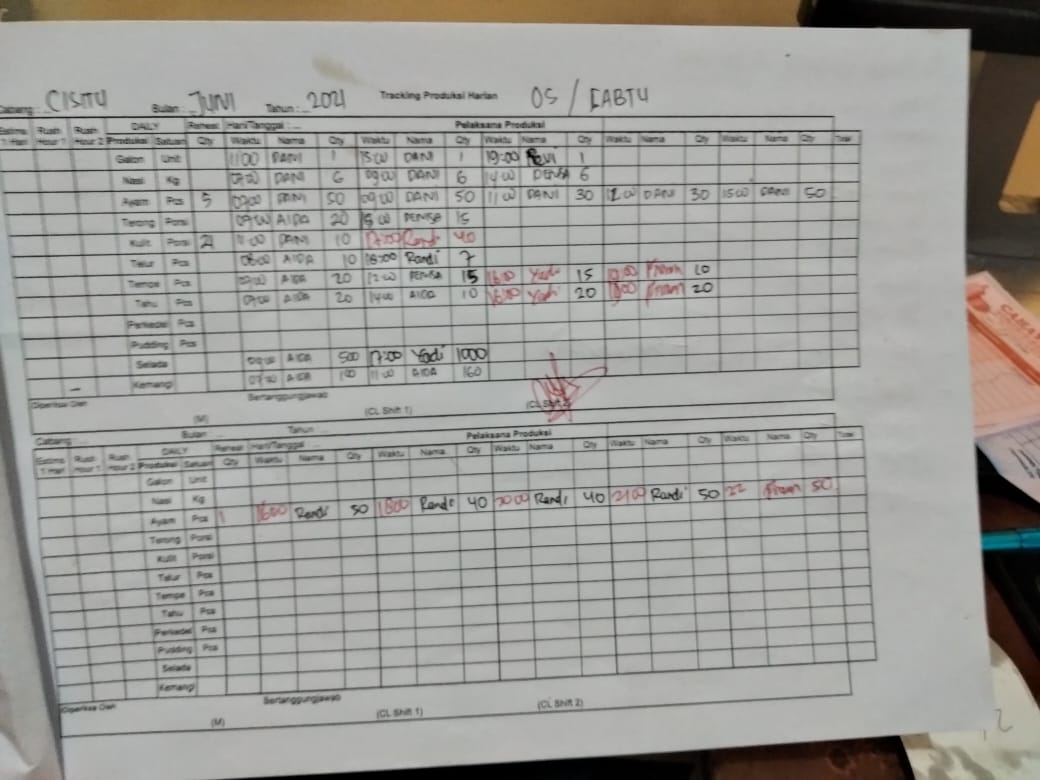 Cabang : CISITU Bulan : JUNI Tahun : 2021 Tracking Produksi Harian 05 / SABTU
Estima 1 Hari Rush Hour 1 Rush Hour 2 DAILY Produksi Satuan Reheat Qty Hari/Tanggal : ... Pelaksana Produksi
Waktu Nama Qty Waktu Nama Qty Waktu Nama Qty Waktu Nama Qty Waktu Nama Qty Total
Galon Unit 11 00 DANI 1 15 00 DANI 1 19:00 Revi 1
Nasi Kg 07 00 DANI 6 09 00 DANI 6 14 00 DENSA 6
Ayam Pcs 5 07 00 DANI 50 09 00 DANI 50 11 00 DANI 30 12 00 DANI 30 15 00 DANI 50
Terong Porsi 07 00 AIDA 20 15 00 DENSA 15
Kulit Porsi 21 11 00 DANI 10 17:00 Randi 40
Telur Pcs 08 00 AIDA 10 18:00 Randi 7
Tempe Pcs 07 00 AIDA 20 12 00 DENSA 15 16:00 Yadi 15 Pram 20
Tahu Pcs 07 00 AIDA 20 14 00 AIDA 10 16:00 Yadi 20 Pram 20
Perkedel Pcs
Pudding Pcs
Selada AIDA 500 17:00 Yadi 1000
Kemangi 07 00 AIDA 11 00 AIDA 160
Diperiksa Oleh Bertanggungjawab
(M) (CL Shift 1) (CL Shift 2)
Cabang : ... Bulan : ... Tahun : ...
Estima 1 Hari Rush Hour 1 Rush Hour 2 DAILY Produksi Satuan Reheat Qty Hari/Tanggal : ... Pelaksana Produksi
Waktu Nama Qty Waktu Nama Qty Waktu Nama Qty Waktu Nama Qty Waktu Nama Qty Total
Galon Unit
Nasi Kg
Ayam Pcs 1 16:00 Randi 50 18:00 Randi 40 20 00 Randi 40 21 00 Randi 50 22 Pram 50
Terong Porsi
Kulit Porsi
Telur Pcs
Tempe Pcs
Tahu Pcs
Perkedel Pcs
Pudding Pcs
Selada
Kemangi
Diperiksa Oleh Bertanggungjawab
(M) (CL Shift 1) (CL Shift 2)